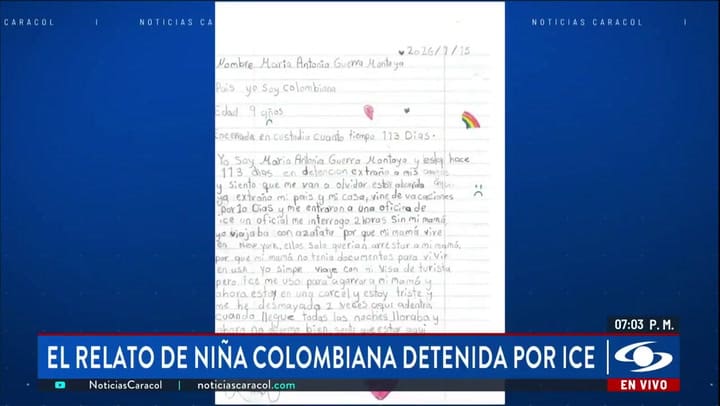 CARACOL
I
NOTICIAS CARACOL
NOTICIAS CARACOL
I
2026/1/15
Nombre Maria Antonia Guerra Montoya
Pais yo soy colombiana
Edad 9 años
Encerrada en custodia cuanto tiempo 113 Dias.
Yo soy Maria Antonia Guerra Montoya y llevo hace
113 dias en detencion extraño a mis amigos
y siento que me van a olvidar estoy aburrida aqui
ya extraño mi pais y mi casa, vine de vacaciones
por 10 Dias y me entraron a una oficina de
ice un oficial me interrogo 2 horas sin mi mamá,
yo viajaba con azafata por que mi mamá vive
en New york, ellos solo querian arrestar a mi mamá,
por que mi mamá no tenia documentos para vivir
en usa. Yo simpre viaje con mi visa de turista
pero Ice me uso para agarrar a mi mamá y
ahora estoy en una carcel y estoy triste y
me he desmayada 2 veces aqui adentro
cuando llegue todas las noches lloraba y
ahora no duermo bien, sentí que estar aqui
07:03 P. M.
EL RELATO DE NIÑA COLOMBIANA DETENIDA POR ICE
EN VIVO
NoticiasCaracol I noticiascaracol.com